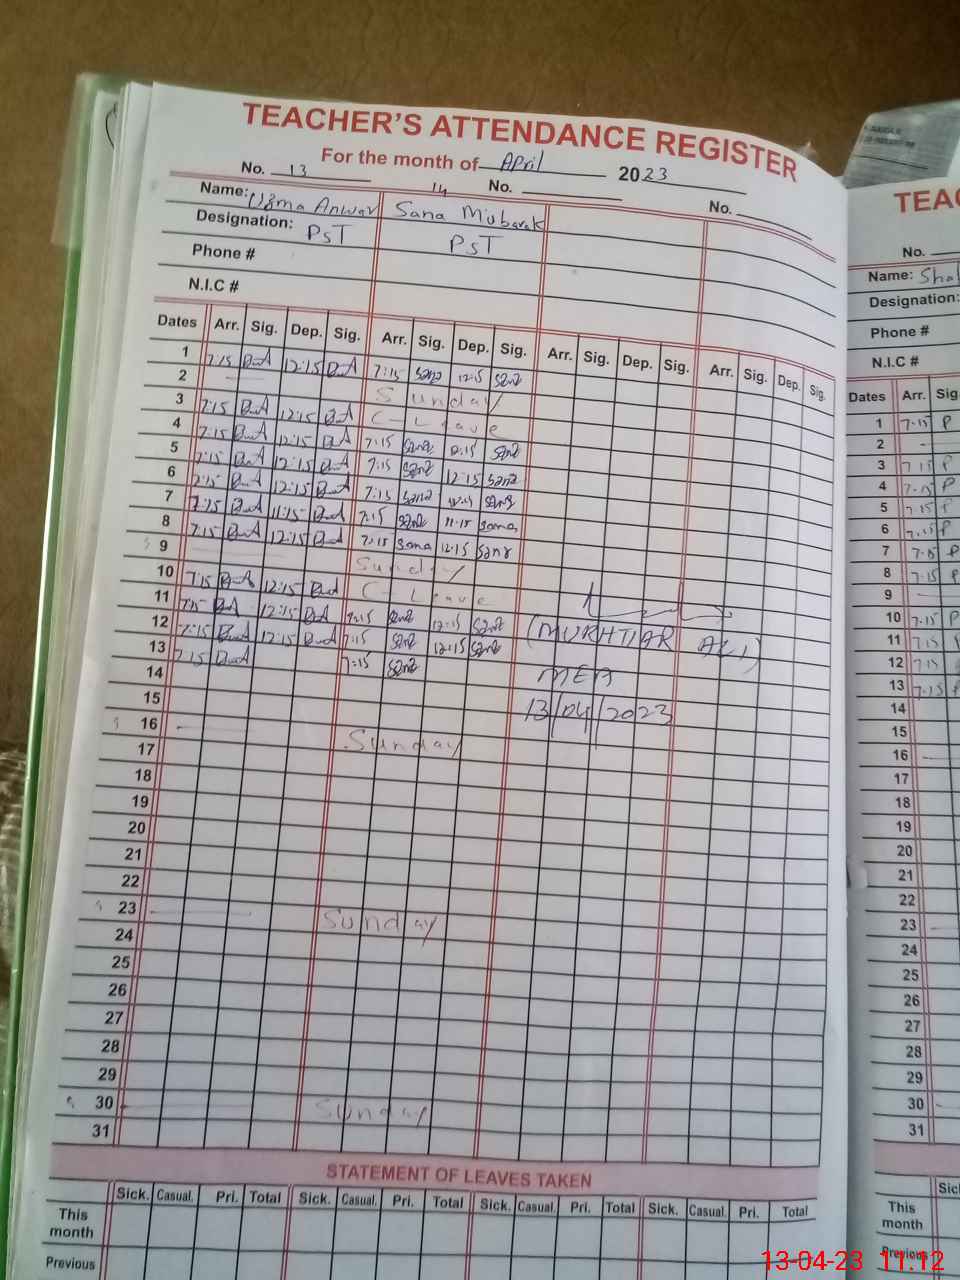 TEACHER'S ATTENDANCE REGISTER
For the month of April 2023
No. 13 14 No. No.
Name: Uzma Anwar Sana Mubarak
Designation: PST PST
Phone #
N.I.C #
Dates Arr. Sig. Dep. Sig. Arr. Sig. Dep. Sig. Arr. Sig. Dep. Sig. Arr. Sig. Dep. Sig.
1 7:15 12:15 7:15 Sana 12:15 Sana
2 Sunday
3 7:15 12:15 C-Leave
4 7:15 12:15 7:15 Sana 12:15 Sana
5 7:15 12:15 7:15 Sana 12:15 Sana
6 7:15 12:15 7:15 Sana Sana
7 7:15 11:15 7:15 Sana 11:15 Sana
8 7:15 12:15 7:15 Sana 12:15 Sana
9 Sunday
10 7:15 12:15 C-Leave
11 7:15 12:15 7:15 Sana 12:15 Sana
12 7:15 12:15 7:15 Sana 12:15 Sana
13 7:15 7:15 Sana
(MUKHTIAR ALI)
14 MEA
15 13/04/2023
16 Sunday
17
18
19
20
21
22
23 Sunday
24
25
26
27
28
29
30 Sunday
31
STATEMENT OF LEAVES TAKEN
Sick. Casual. Pri. Total Sick. Casual. Pri. Total Sick. Casual. Pri. Total Sick. Casual. Pri. Total
This month
Previous
TEAC
No.
Name: Sha
Designation:
Phone #
N.I.C #
Dates Arr. Sig
1 7:15 P
2 -
3 7:15 P
4 7:15 P
5 7:15 P
6 7:15 P
7 7:15 P
8 7:15 P
9
10 7:15 P
11 7:15
12 7:15
13 7:15 P
14
15
16
17
18
19
20
21
22
23
24
25
26
27
28
29
30
31
Sic
This month
Previous
13-04-23 11:12